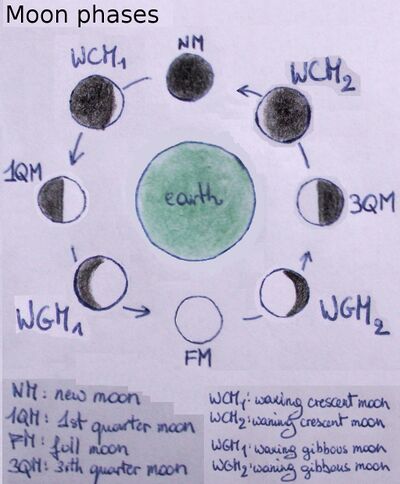 Moon phases
NM
WCM1
WCM2
1QM
earth
3QM
WGM1
WGM2
FM
NM: new moon
1QM: 1st quarter moon
FM: foil moon
3QM: 3ith quarter moon
WCM1: waxing crescent moon
WCM2: waning crescent moon
WGM1: waxing gibbous moon
WGM2: waning gibbous moon